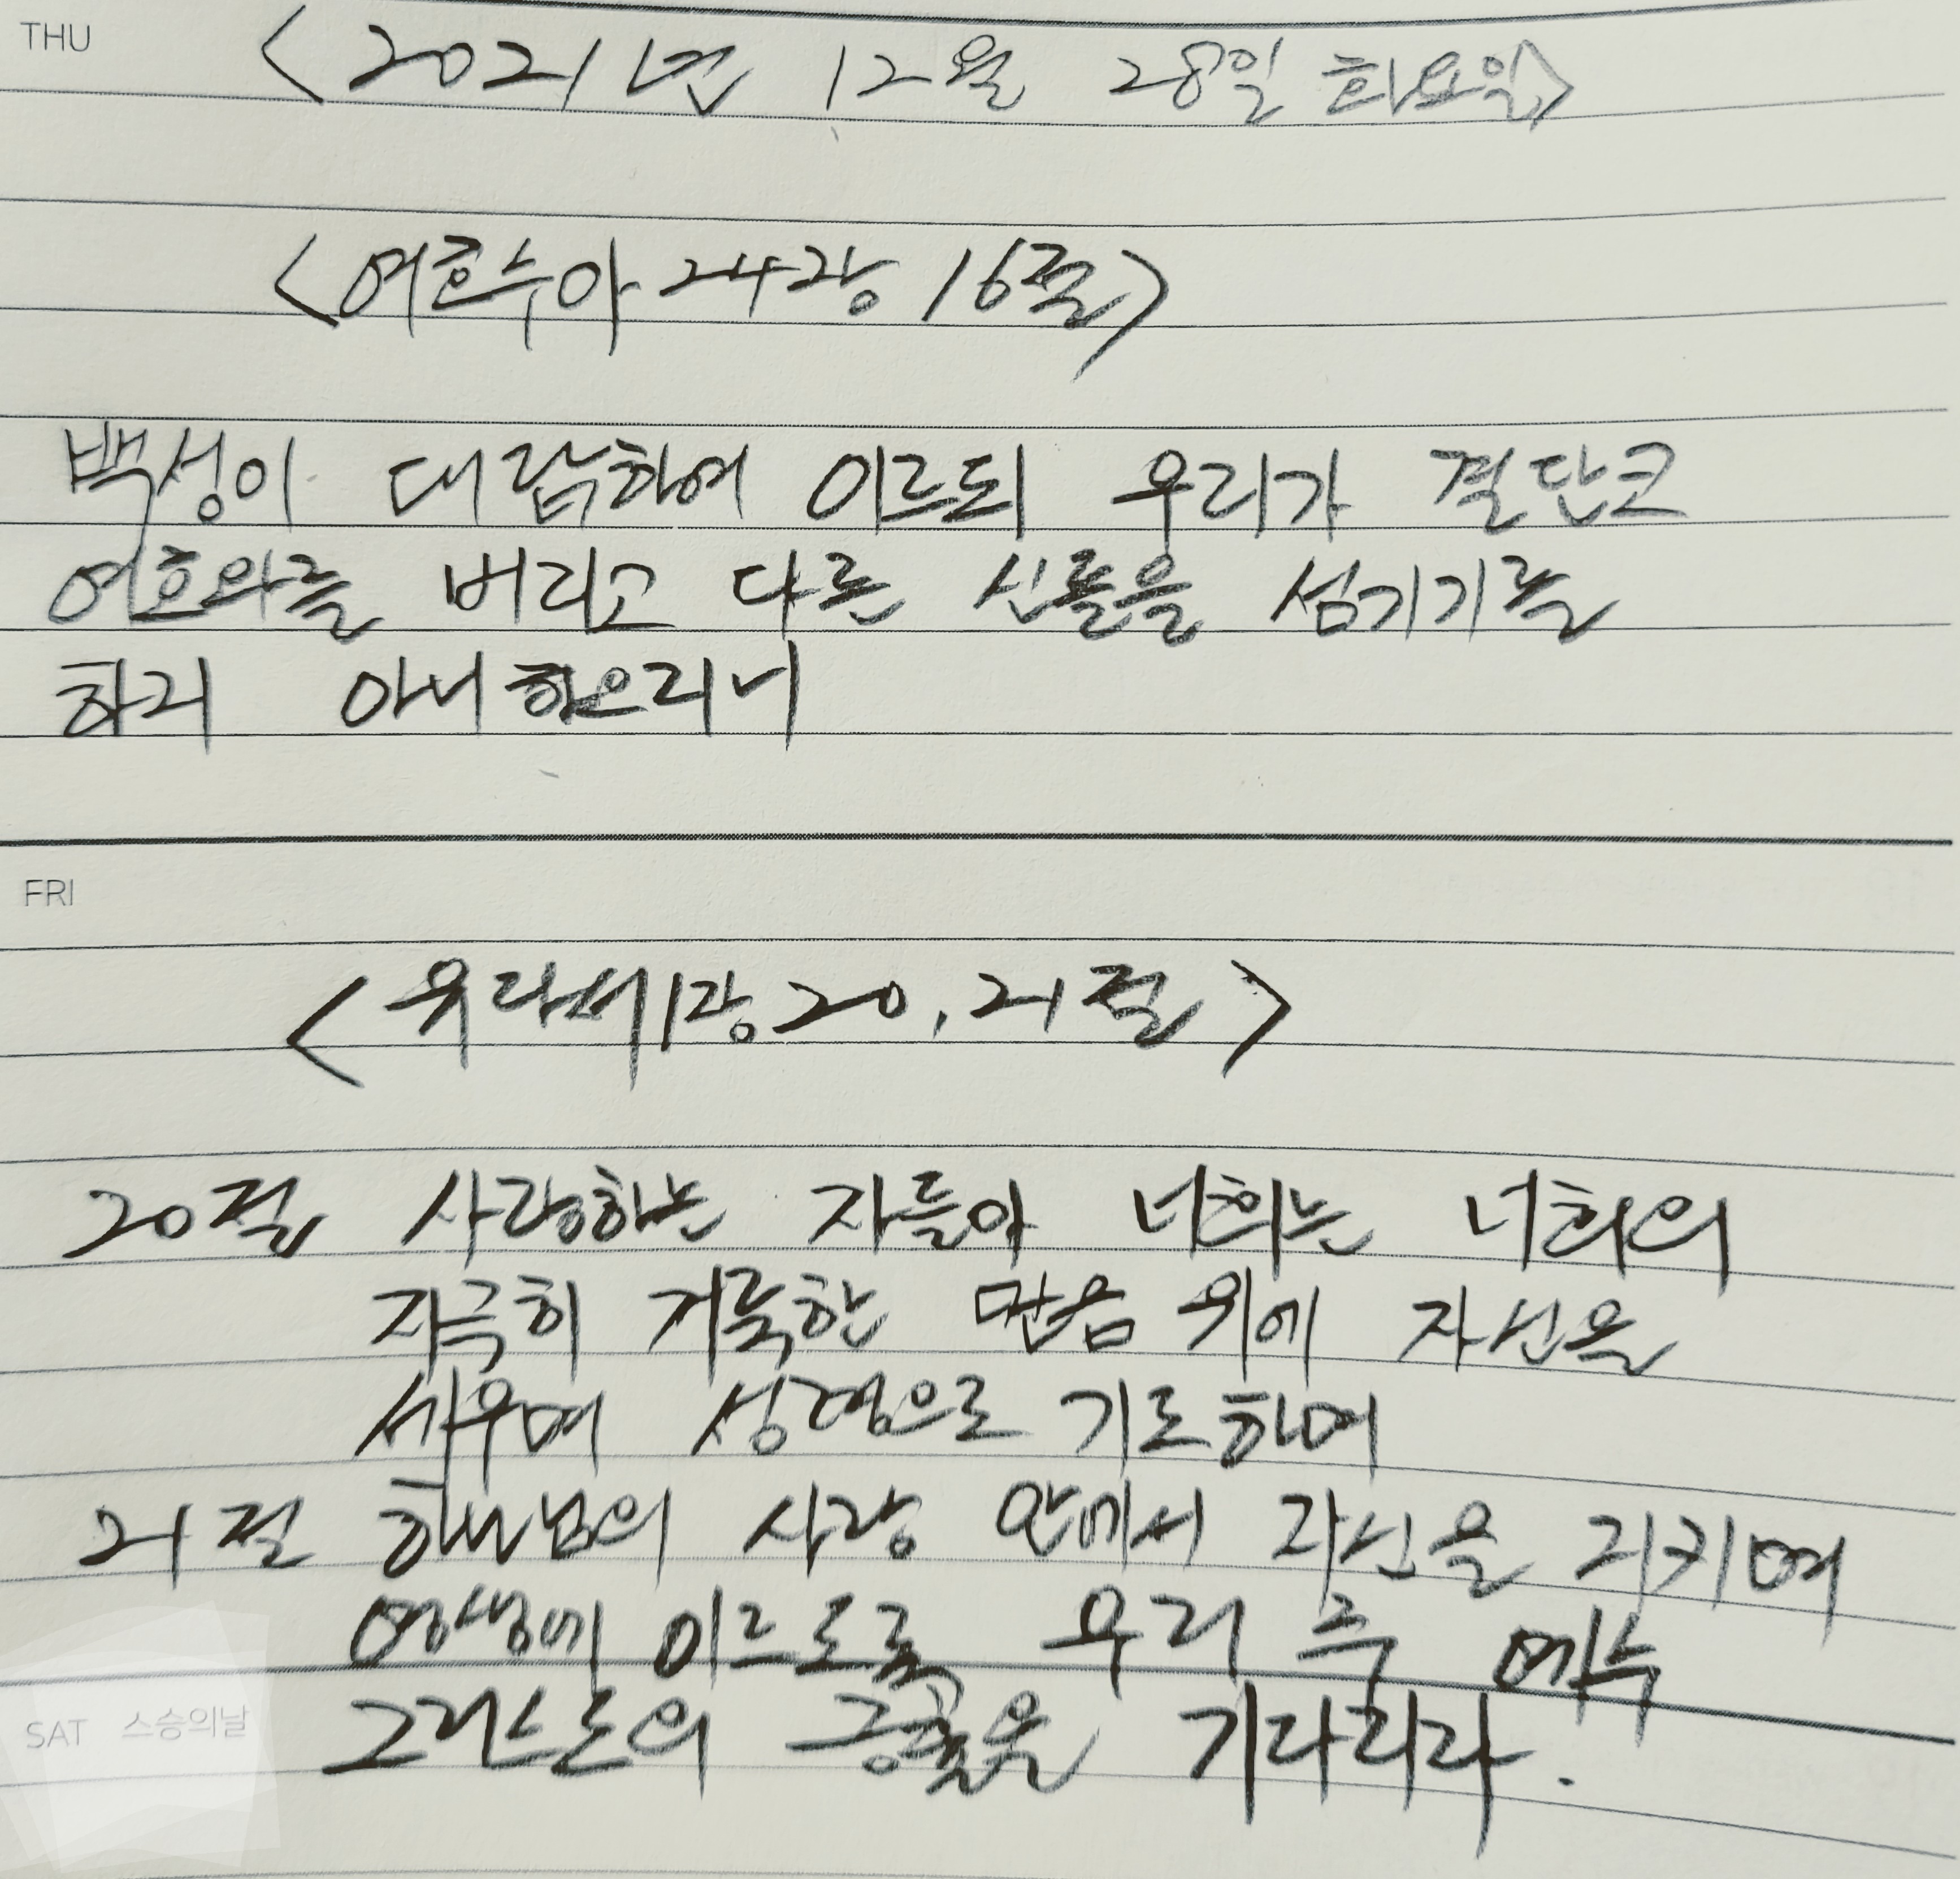 THU
<2021년 12월 28일 화요일>
<여호수아 24장 16절>
백성이 대답하여 이르되 우리가 결단코
여호와를 버리고 다른 신들을 섬기기를
하지 아니하오리니
FRI
<유다서 1장 20, 21절>
20절 사랑하는 자들아 너희는 너희의
지극히 거룩한 믿음 위에 자신을
세우며 성령으로 기도하며
21절 하나님의 사랑 안에서 자신을 지키며
영생에 이르도록 우리 주 예수
그리스도의 긍휼을 기다리라.
SAT 스승의날